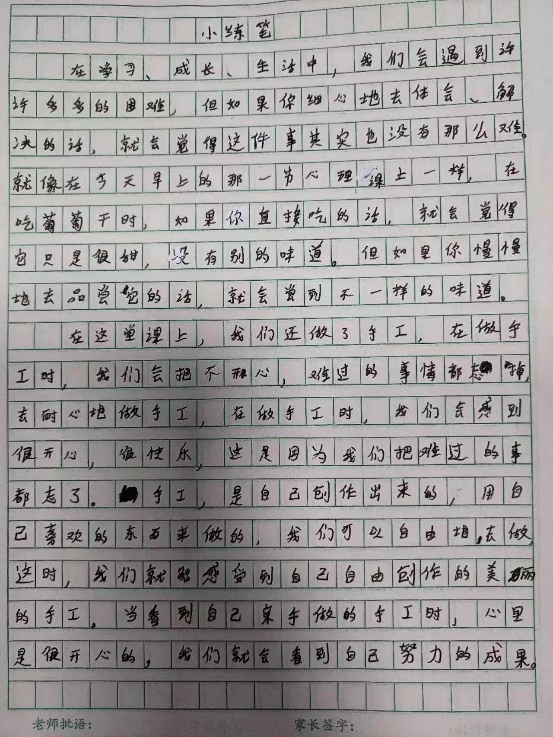 小练笔
在学习、成长、生活中，我们会遇到许
许多多的困难，但如果你细心地去体会、解
决的话，就会觉得这件事其实也没有那么难。
就像在今天早上的那一节心理课上一样，在
吃葡萄干时，如果你直接吃的话，就会觉得
它只是很甜，没有别的味道。但如果你慢慢
地去品尝它的话，就会尝到不一样的味道。
在这堂课上，我们还做了手工，在做手
工时，我们会把不开心，难过的事情都忘掉，
去耐心地做手工，在做手工时，我们会感到
很开心，很快乐，这是因为我们把难过的事
都忘了。手工，是自己创作出来的，用自
己喜欢的东西来做的，我们可以自由地去做，
这时，我们就能感受到自己自由创作的美丽
的手工。当看到自己亲手做的手工时，心里
是很开心的，我们就会看到自己努力的成果。
老师批语： 家长签字：